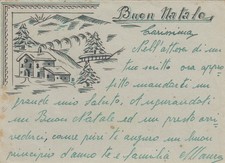 Buon Natale
Carissima
Nell'attesa di un
tuo scritto ora appro
fitto mandarti un
grande mio saluto. Augurandoti
un Buon Natale ed un presto arri
vederci, come pure ti auguro un buon
principio d'anno te e famiglia